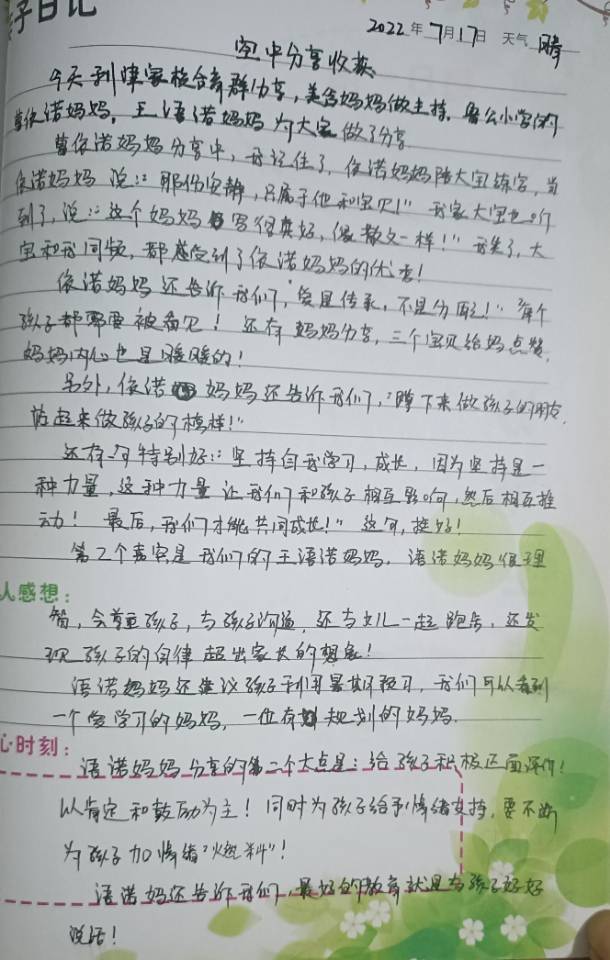 子日记
2022年7月17日 天气 晴
空中分享收获
今天到津家校合育群分享,美含妈妈做主持,曾公小学的
曾依诺妈妈,王语诺妈妈为大家做了分享
曾依诺妈妈分享中,我记住了,依诺妈妈陪大宝练字,当
依诺妈妈说:"那份安静,只属于他和宝贝!"我家大宝也听
到了,说:"这个妈妈写得真好,像散文一样!"我笑了,大
宝和我同频,都感受到了依诺妈妈的优秀!
依诺妈妈还告诉我们,"爱是传承,不是分配!"每个
孩子都需要被看见!还有妈妈分享,三个宝贝给妈点赞,
妈妈内心也是暖暖的!
另外,依诺妈妈还告诉我们,"蹲下来做孩子的朋友,
站起来做孩子的榜样!"
还有一句特别好:"坚持自我学习,成长,因为坚持是一
种力量,这种力量让我们和孩子相互影响,然后相互推
动!最后,我们才能共同成长!"这句,挺好!
第二个嘉宾是我们的王语诺妈妈,语诺妈妈很理
人感想:
智,会尊重孩子,与孩子沟通,还与女儿一起跑步,还发
现孩子的自律超出家长的想象!
语诺妈妈还建议孩子利用暑期预习,我们可以看到
一个爱学习的妈妈,一位有规划的妈妈.
心时刻:
语诺妈妈分享的第二个大点是:给孩子积极正面评价!
以肯定和鼓励为主!同时为孩子给予情绪支持,要不断
为孩子加情绪"燃料"!
语诺妈还告诉我们,最好的教育就是与孩子好好
说话!